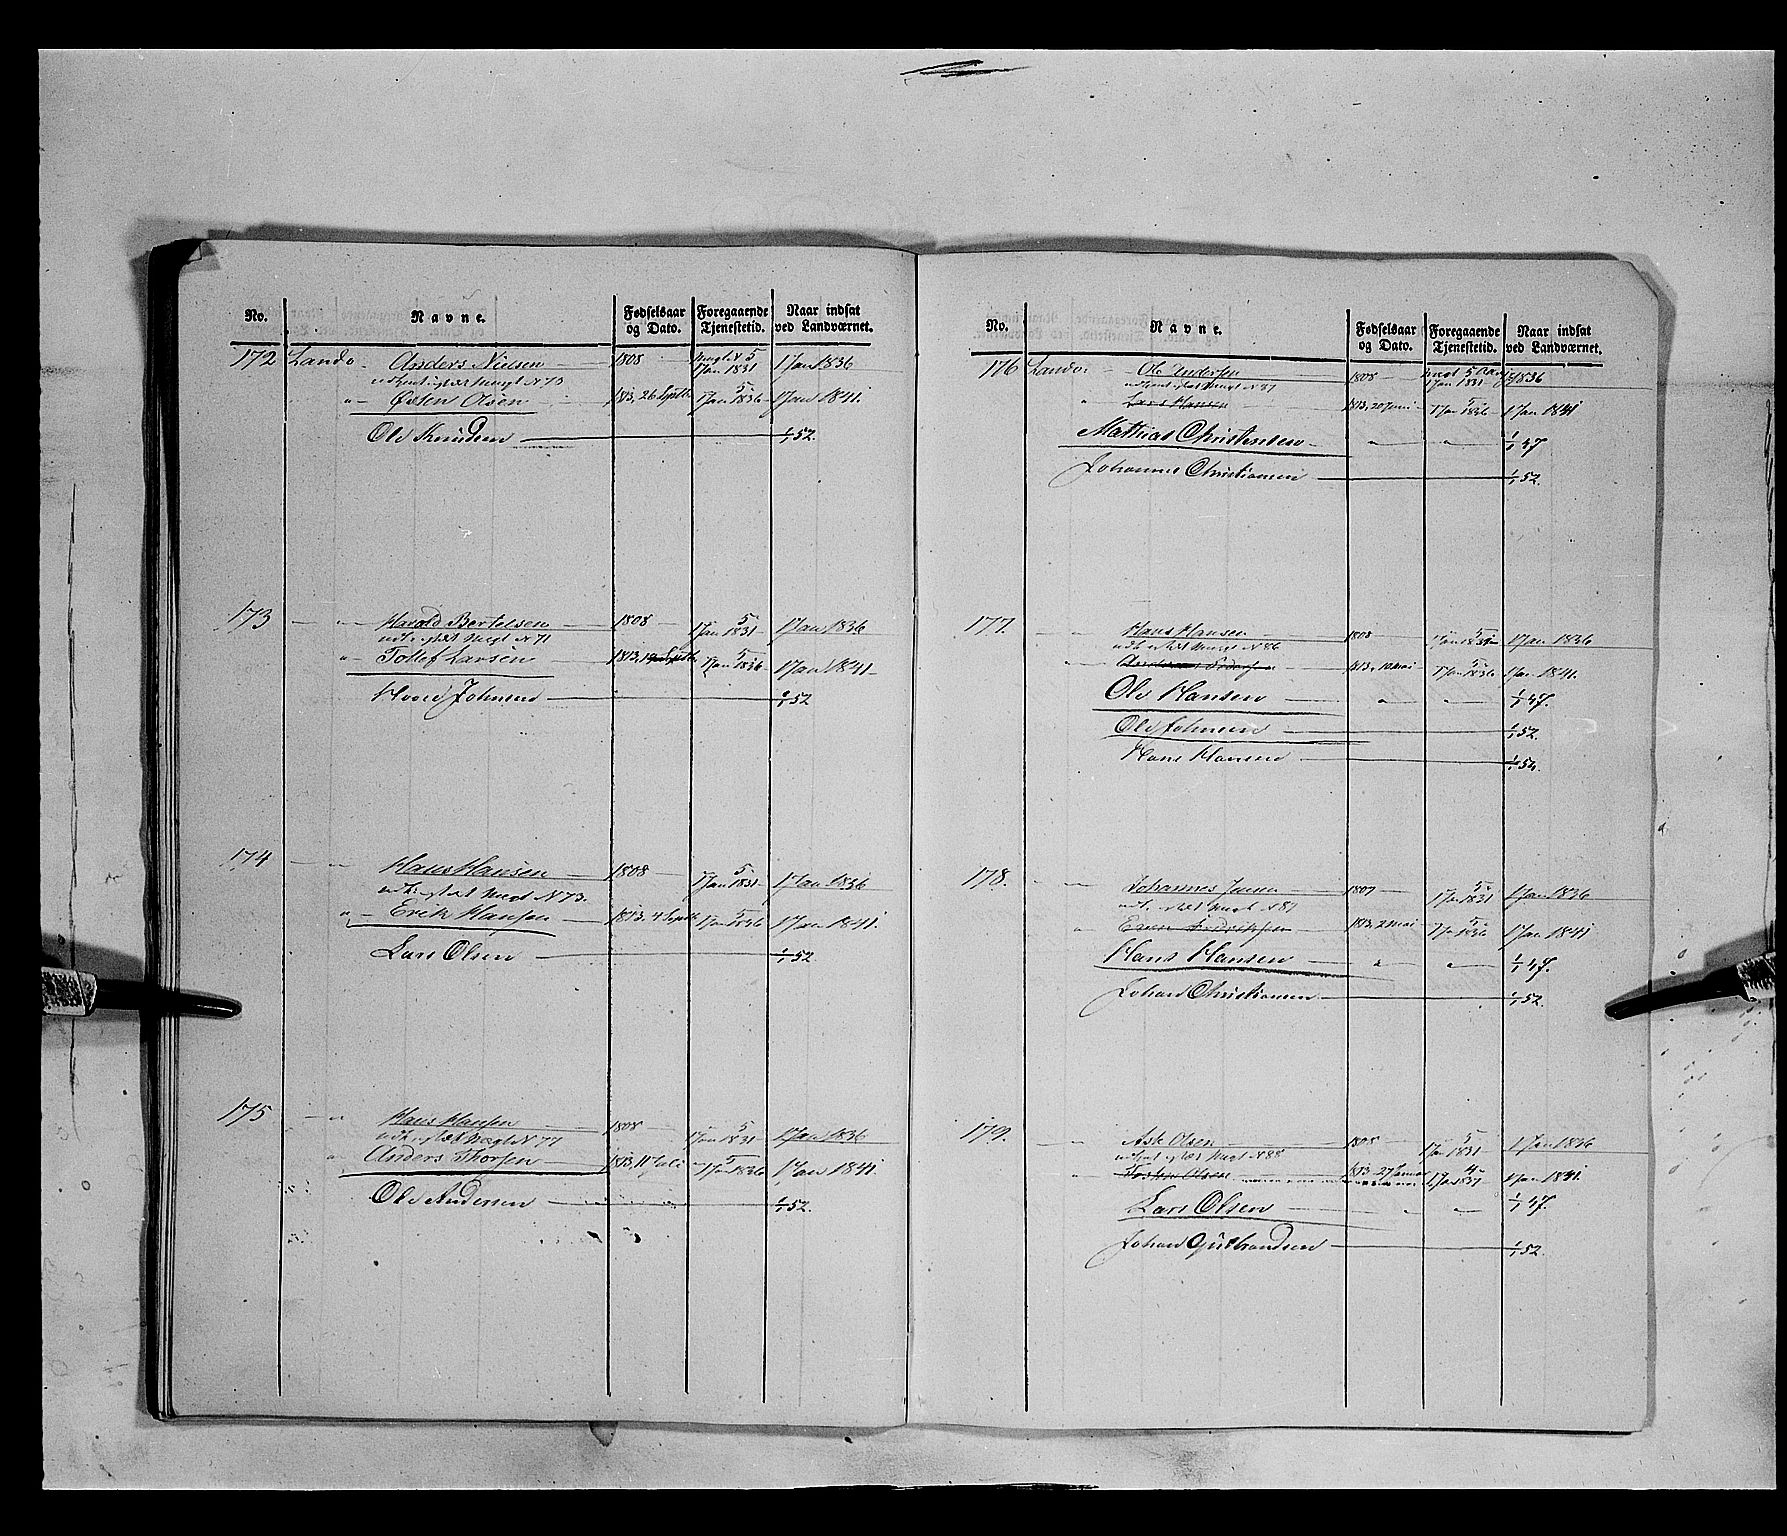 No. Navne. Fødselsaar og Dato. Foregaaende Tjenestetid. Naar indsat ved Landværnet.
172 Lando - Anders Nielsen 1808 5 1 Jan 1831 1 Jan 1836
Mgt N 75
"- Osten Olsen 1813, 26 Septb 5 1 Jan 1836 1 Jan 1841.
Ole Knudsen 1/1 52.
173 - " Harald Bertelsen 1808 5 1 Jan 1831 1 Jan 1836
Mgt N 71
"- Tollef Larsen 1813, Septb 5 1 Jan 1836 1 Jan 1841
Johnsen 1/1 52
174 - " Hans Hansen 1808 5 1 Jan 1831 1 Jan 1836
Mgt N 73.
"- Erik Hansen 1813, 4 Septb 5 1 Jan 1836 1 Jan 1841.
Lars Olsen 1/1 52
175 - " Hans Hansen 1808 5 1 Jan 1831 1 Jan 1836
Mgt N 77
" Anders Thorsen 1813, 11 Juli 5 1 Jan 1836 1 Jan 1841
Ole Andersen 1/1 52.
No. Navne. Fødselsaar og Dato. Foregaaende Tjenestetid. Naar indsat ved Landværnet.
176 Lando: Ole Andersen 1808 5 1 Jan 1831 1836
Mgt N 87
" Lars Hansen 1813, 20 Juni 5 1 Jan 1836 1 Jan 1841
Mattias Christensen " " 1/1 47
Johannes Christiansen 1/1 52.
177. - " Hans Hansen 1808 5 1 Jan 1831 1 Jan 1836
Mgt N 86
" Andreas Pedersen 1813, 10 Mai 5 1 Jan 1836 1 Jan 1841.
Ole Hansen " " 1/1 47.
Ole Johnsen 1/1 52.
Hans Hansen 1/1 54.
178. - " Johannes Jensen 1807 5 1 Jan 1831 1 Jan 1836
Mgt N 87
" Even Fredriksen 1813, 2 Mai 5 1 Jan 1836 1 Jan 1841
Hans Hansen " " 1/1 47.
Johan Christiansen 1/1 52.
179. - " Ask Olsen 1808 5 1 Jan 1831 1 Jan 1836
Mgt N 88
" Olsen 1813, 27 Januar 4 1 Jan 1837 1 Jan 1841.
Lars Olsen " " 1/1 47.
Johan Gulbrandsen 1/1 52.